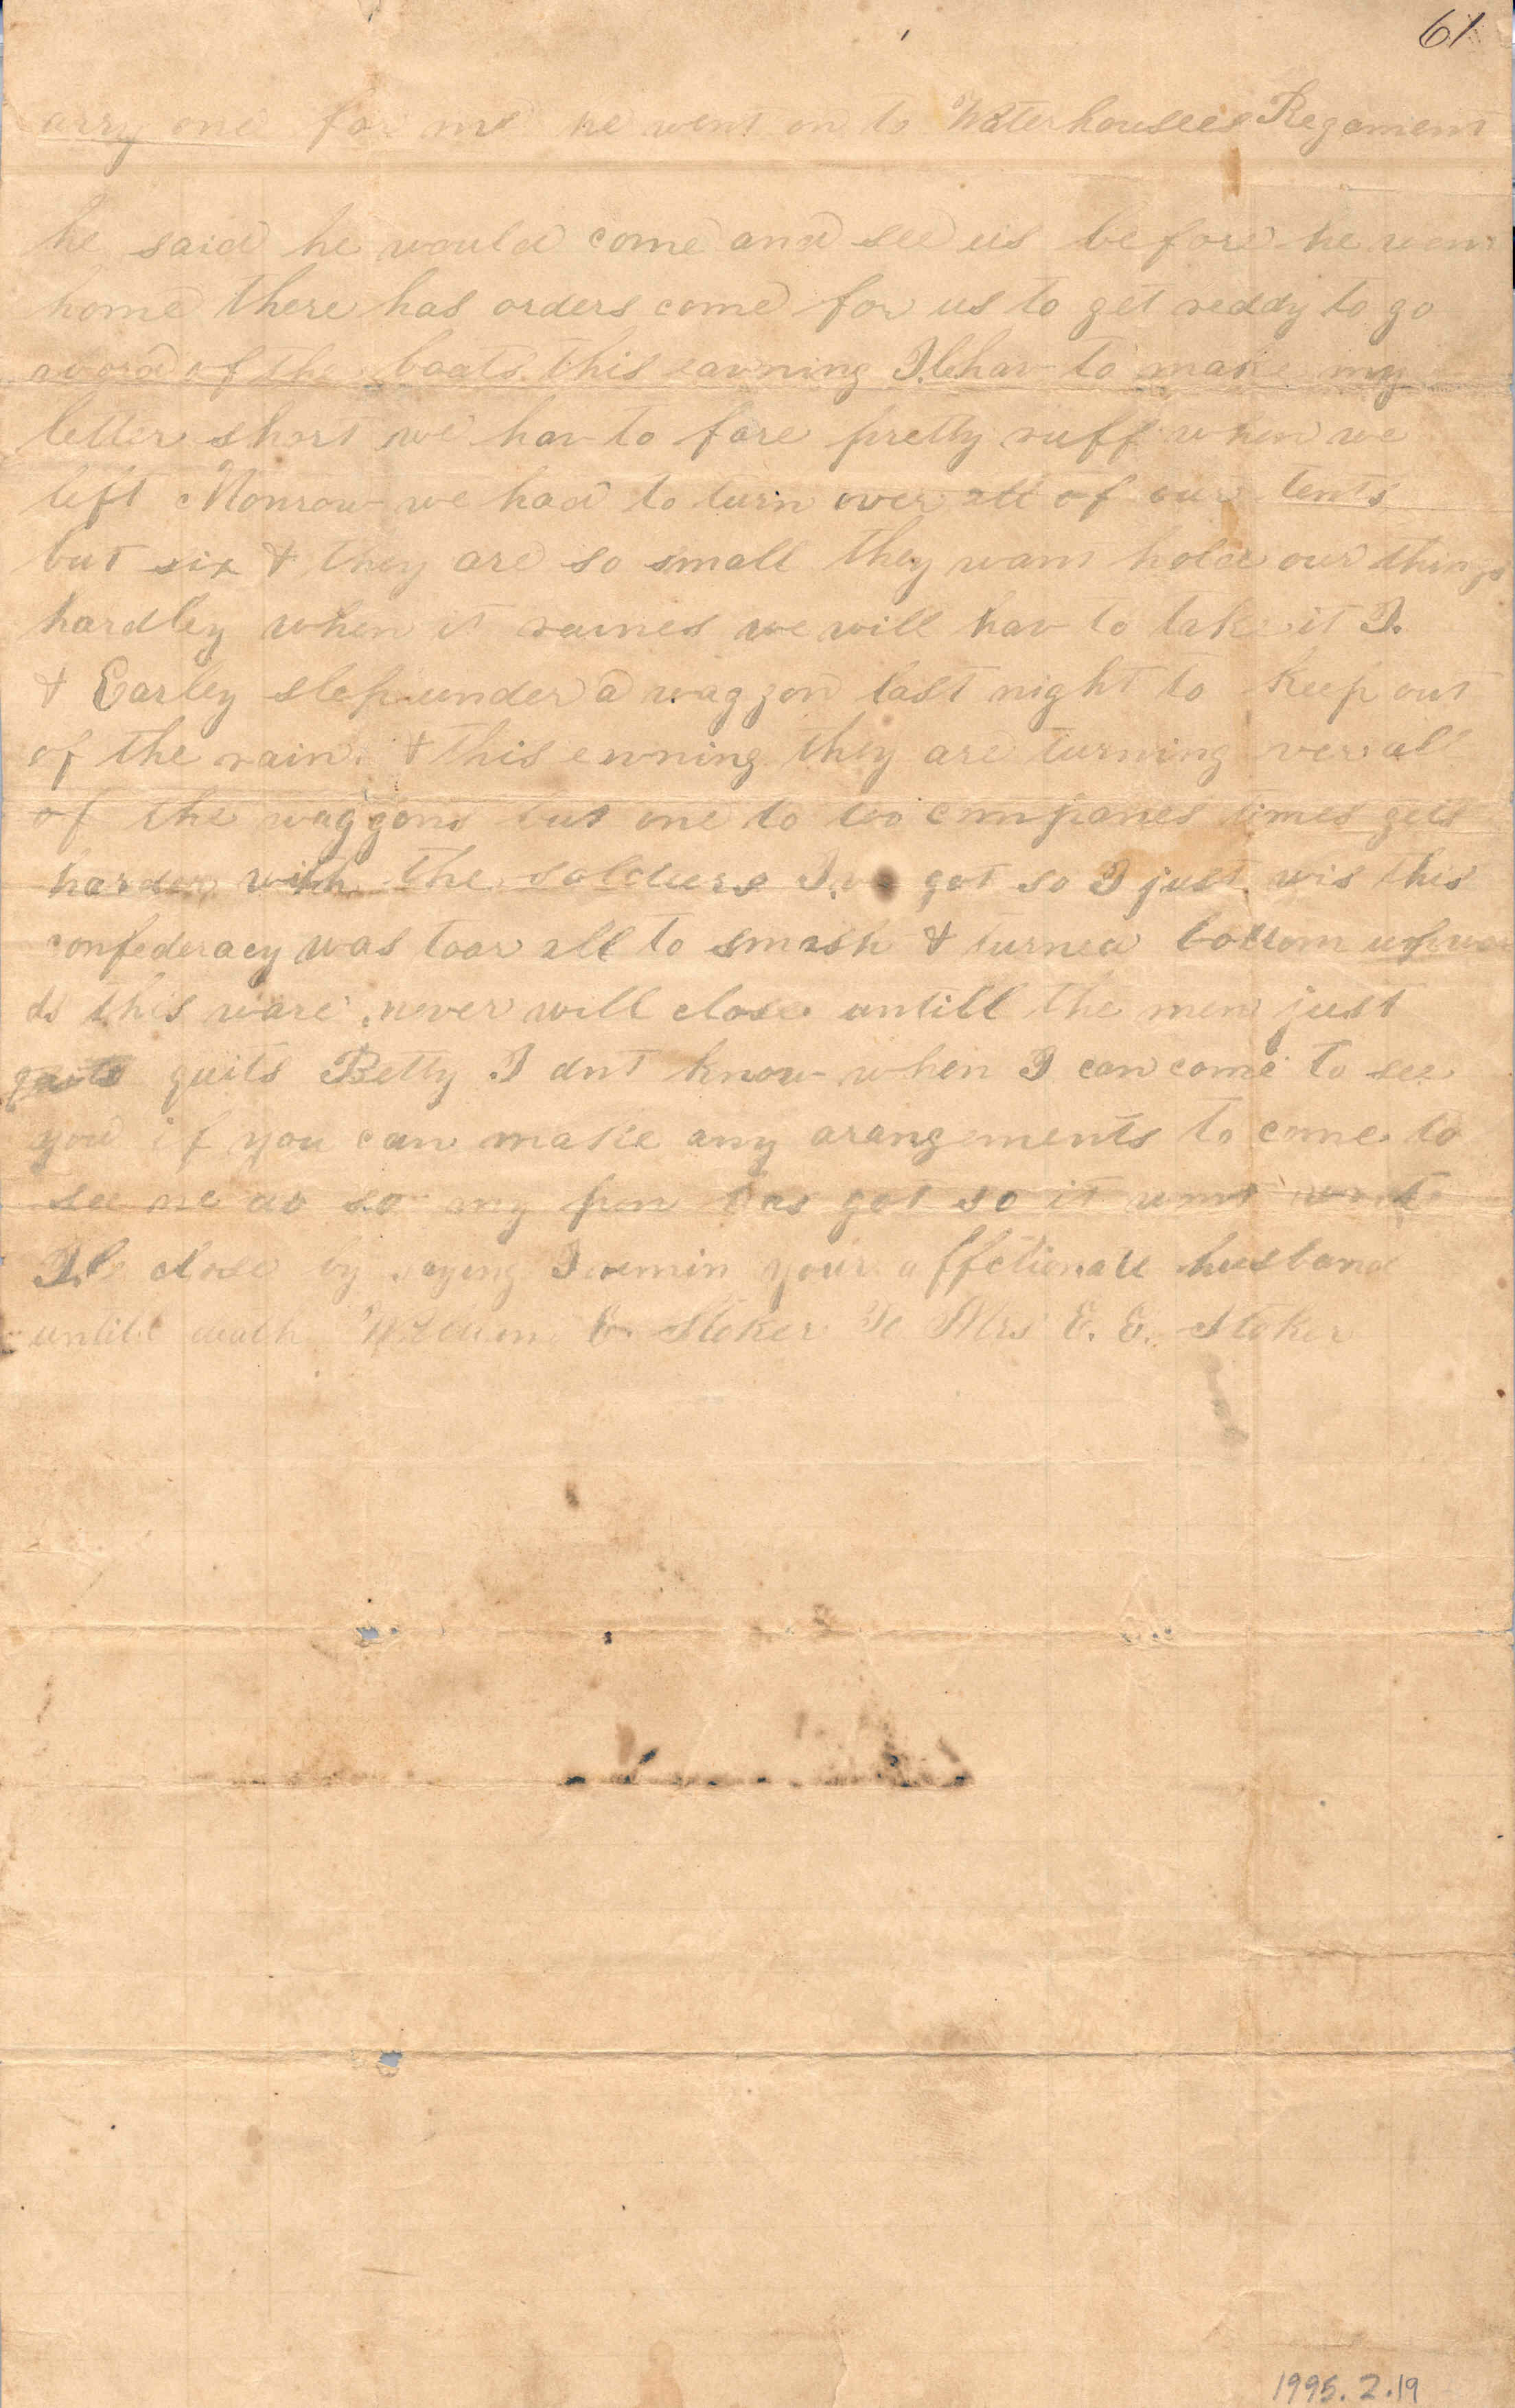 61
arry one for me he went on to Waterhousees Regament
he said he would come and see us before he went
home there has orders come for us to get reddy to go
abord of the boats this eavning I.le hav to make my
letter short we hav to fare pretty ruff when we
left Monrow we had to turn over all of our tents
but six & they are so small they want hold our things
hardley when it raines we will hav to take it I.
& Earley slep under a waggon last night to keep out
of the rain. & this evning they are turning over all
of the waggons but one to too companes times gets
harder with the soldiers I.ve got so I just wis this
confederacy was toar all to smash & turned bottom upwar
ds this ware never will close untill the men just
quits Betty I dnt know when I can come to see
you if you can make any arangements to come to
see me do so my pen has got so it wont write
I.le close by saying I remin your affctionate husband
untill death William E. Stoker To Mrs E. E. Stoker
1995.2.19